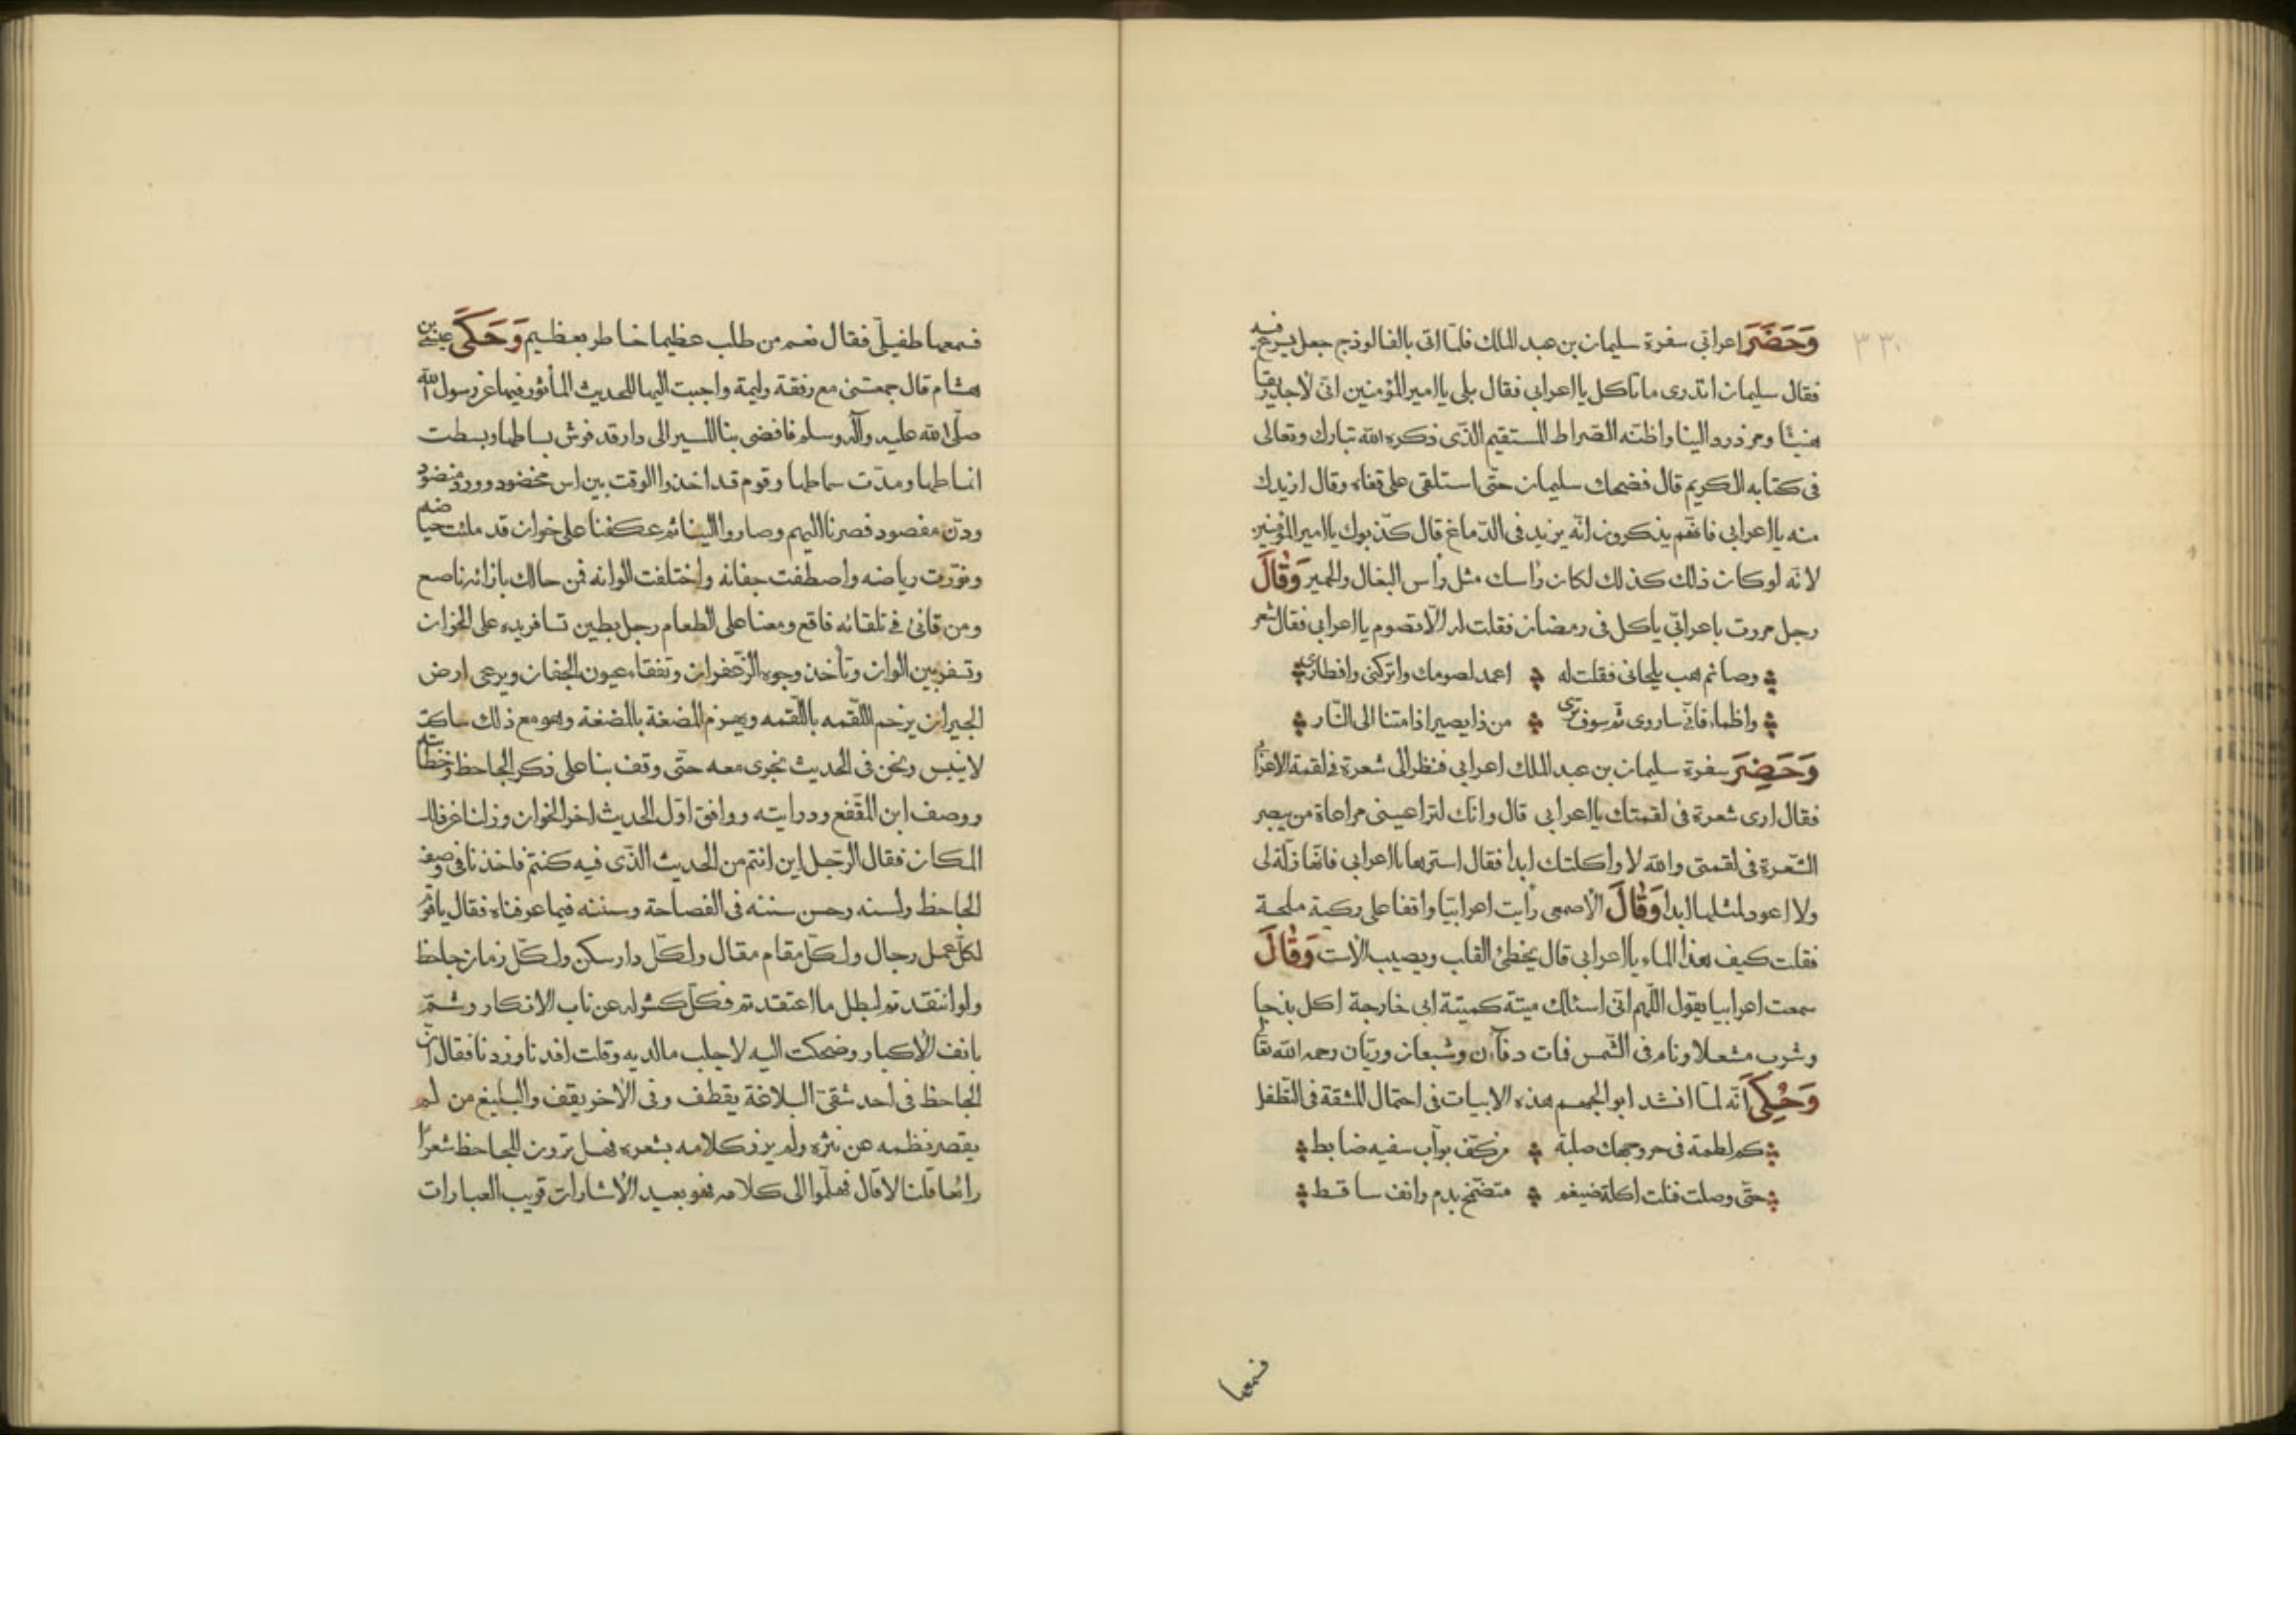 ٣٣٠
وَحَضَرَ اعرابي سفرة سليمان بن عبد الملك فلمّا اتى بالفالوذج جعل يسرع فيه
فقال سليمان اتدرى ما تاكل يا اعرابي فقال بلى يا امير المؤمنين انّى لاجد ريقا
هنيئا ومزدردا لينا واظنّه الصّراط المستقيم الذّى ذكره الله تبارك وتعالى
فى كتابه الكريم قال فضحك سليمان حتّى استلقى على قفاه وقال ازيدك
منه يا اعرابي فانّهم يذكرون انّه يزيد فى الدّماغ قال كذّبوك يا امير المؤمنين
لانّه لو كان ذلك كذلك لكان رأسك مثل رأس البغال والحمير وَقَالَ
رجل مررت باعرابّي ياكل فى رمضان فقلت له الّا تصوم يا اعرابي فقال شعر
وصائم هب يلحانى فقلت له اعمد لصومك واتركنى وافطارى
واظماء فانّى ساروى ثمّ سوف ترى من ذا يصير اذا متنا الى النّار
وَحَضِرَ سفرة سليمان بن عبد الملك اعرابي فنظر الى شعرة فى لقمة الاعرابى
فقال ارى شعرة فى لقمتك يا اعرابي قال وانّك لتراعينى مراعاة من يبصر
الشّعرة فى لقمتى والله لا واكلتك ابدا فقال استرها يا اعرابي فانّها زلّة لى
ولا اعود لمثلها ابدا وَقَالَ الاصمعى رأيت اعرابيّا واقفا على ركية ملحة
فقلت كيف هذا الماء يا اعرابى قال يخطئ القلب ويصيب الاست وَقَالَ
سمعت اعرابيا يقول اللّهم انّى اسئلك ميتة كميتة ابى خارجة اكل بذجا
وشرب مشعلا ونام فى الشّمس فمات دفآن وشبعان وريّان رحمه الله تعا
وَحُكِىَ انّه لمّا انشد ابو الجهم هذه الابيات فى احتمال المشقة فى التّطفل
كم لطمة فى حر وجهك صلبة من كفّ بوّاب سفيه ضابط
حتّى وصلت فنلت اكلة ضيغم متضمّخ بدم وانف ساقط
فسمعها
فسمعها طفيلّى فقال نعم من طلب عظيما خاطر بعظيم وَحَكَى عيسى بن
هشام قال جمعتنى مع رفقة وليمة واجبت اليها للحديث المأثور فيها عن رسول الله
صلّى الله عليه وآله وسلم فافضى بنا السير الى دار قد فرش بساطها وبسطت
انماطها ومدّت سماطها وقوم قد اخذوا الوقت بين اس مخضود وورد منضود
ودنّ مفصود فصرنا اليهم وصاروا الينا ثم عكفنا على خوان قد ملئت حياضه
ونوّرت رياضه واصطفت جفانه واختلفت الوانه فمن حالك بازائه ناصع
ومن قانئ فى تلقائه فاقع ومعنا على الطعام رجل بطين تسافر يده على الخوان
وتسفر بين الوان وتأخذ وجوه الزّعفران وتفقاء عيون الجفان ويرعى ارض
الجيران يزحم اللّقمه باللّقمه ويهزم المضغة بالمضغة وهو مع ذلك ساكت
لا ينبس ونحن فى الحديث نجرى معه حتّى وقف بنا على ذكر الجاحظ وخطابته
ووصف ابن المقّفع ودرايته ووافق اوّل الحديث اخر الخوان وزلنا عن ذلك
المكان فقال الرّجل اين انتم من الحديث الذّى فيه كنتم فاخذنا فى وصف
الجاحظ ولسنه وحسن سننه فى الفصاحة وسننه فيما عرفناه فقال يا قوم
لكلّ عمل رجال ولكلّ مقام مقال ولكلّ دار سكن ولكلّ زمان جاحظ
ولو انتقدتم لبطل ما اعتقدتم فكلّ كشر له عن ناب الانكار وشمّ
بانف الاكبار وضحكت اليه لاجلب ما لديه وقلت افدنا وزدنا فقال انّ
الجاحظ فى احد شقىّ البلاغة يقطف وفى الاخر يقف والبليغ من لم
يقصر نظمه عن نثره ولم يزر كلامه بشعره فهل ترون للجاحظ شعرًا
رائعا قلنا لا قال فهلمّوا الى كلامه فهو بعيد الاشارات قريب العبارات